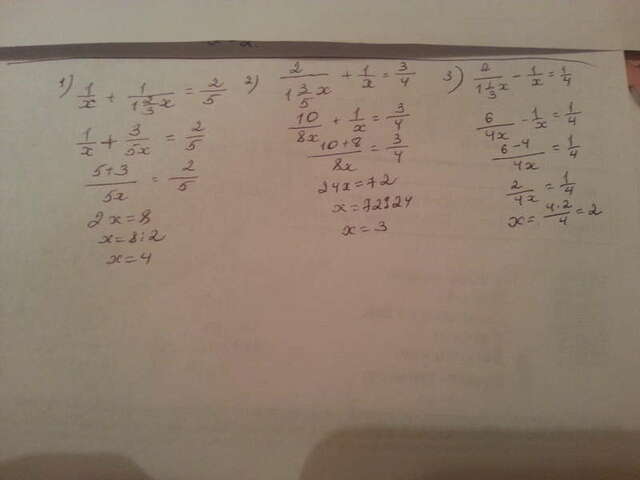 1) 1/x + 1/(1 2/3 x) = 2/5
1/x + 3/5x = 2/5
(5+3)/5x = 2/5
2x = 8
x = 8:2
x = 4
2) 2/(1 3/5 x) + 1/x = 3/4
10/8x + 1/x = 3/4
(10+8)/8x = 3/4
24x = 72
x = 72:24
x = 3
3) 2/(1 1/3 x) - 1/x = 1/4
6/4x - 1/x = 1/4
(6-4)/4x = 1/4
2/4x = 1/4
x = (4·2)/4 = 2